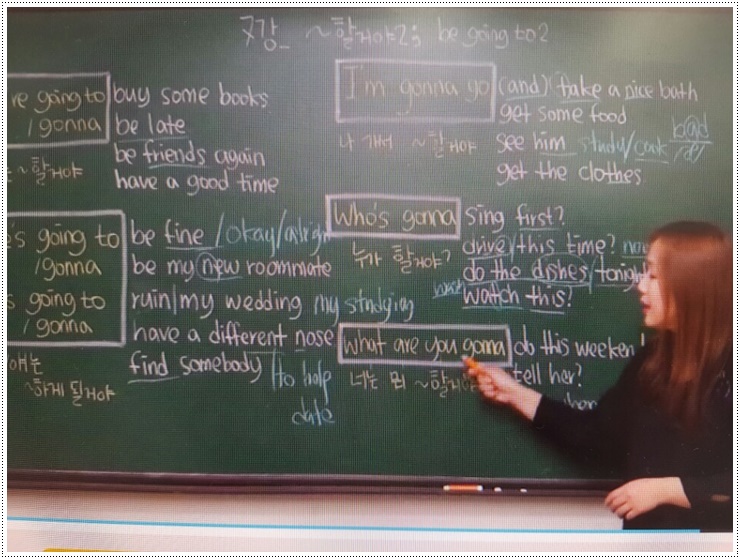 7강_ ~할거야2; be going to2
re going to
/gonna
~할거야
buy some books
be late
be friends again
have a good time
's going to
/gonna
s going to
/gonna
~하게 될거야
be fine/okay/alright
be my new roommate
ruin my wedding my studying
have a different nose
find somebody /to help
date
I'm gonna go
나 가서 ~할거야
(and) take a nice bath
get some food
see him study/cook
get the clothes
Who's gonna
누가 할거야?
sing first?
drive/this time?
do the dishes/tonight
wash
watch this?
What are you gonna
너는 뭐 ~할거야
do this weeken
tell her?